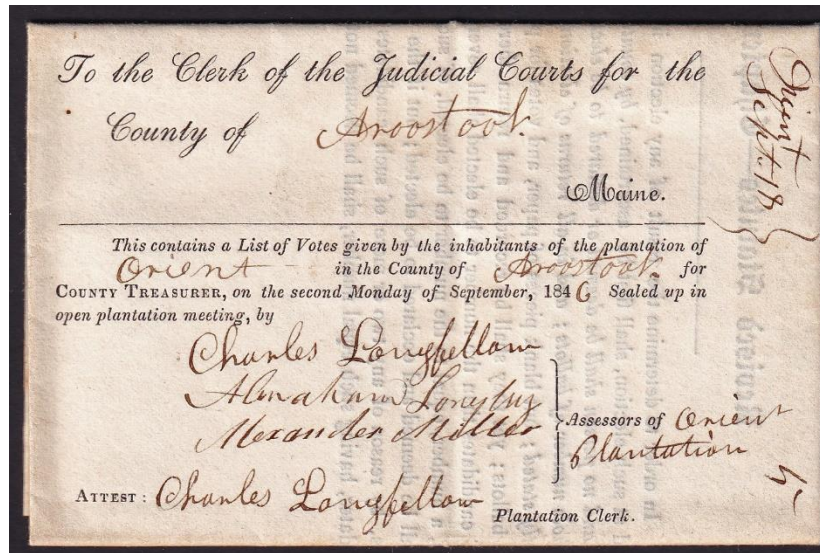 To the Clerk of the Judicial Courts for the
County of Aroostook
Maine.
Orient
Sept. 18
This contains a List of Votes given by the inhabitants of the plantation of
Orient in the County of Aroostook for
COUNTY TREASURER, on the second Monday of September, 1846 Sealed up in
open plantation meeting, by
Charles Longfellow
Abraham Longley
Alexander Miller
Assessors of Orient
Plantation
ATTEST: Charles Longfellow
Plantation Clerk.
5